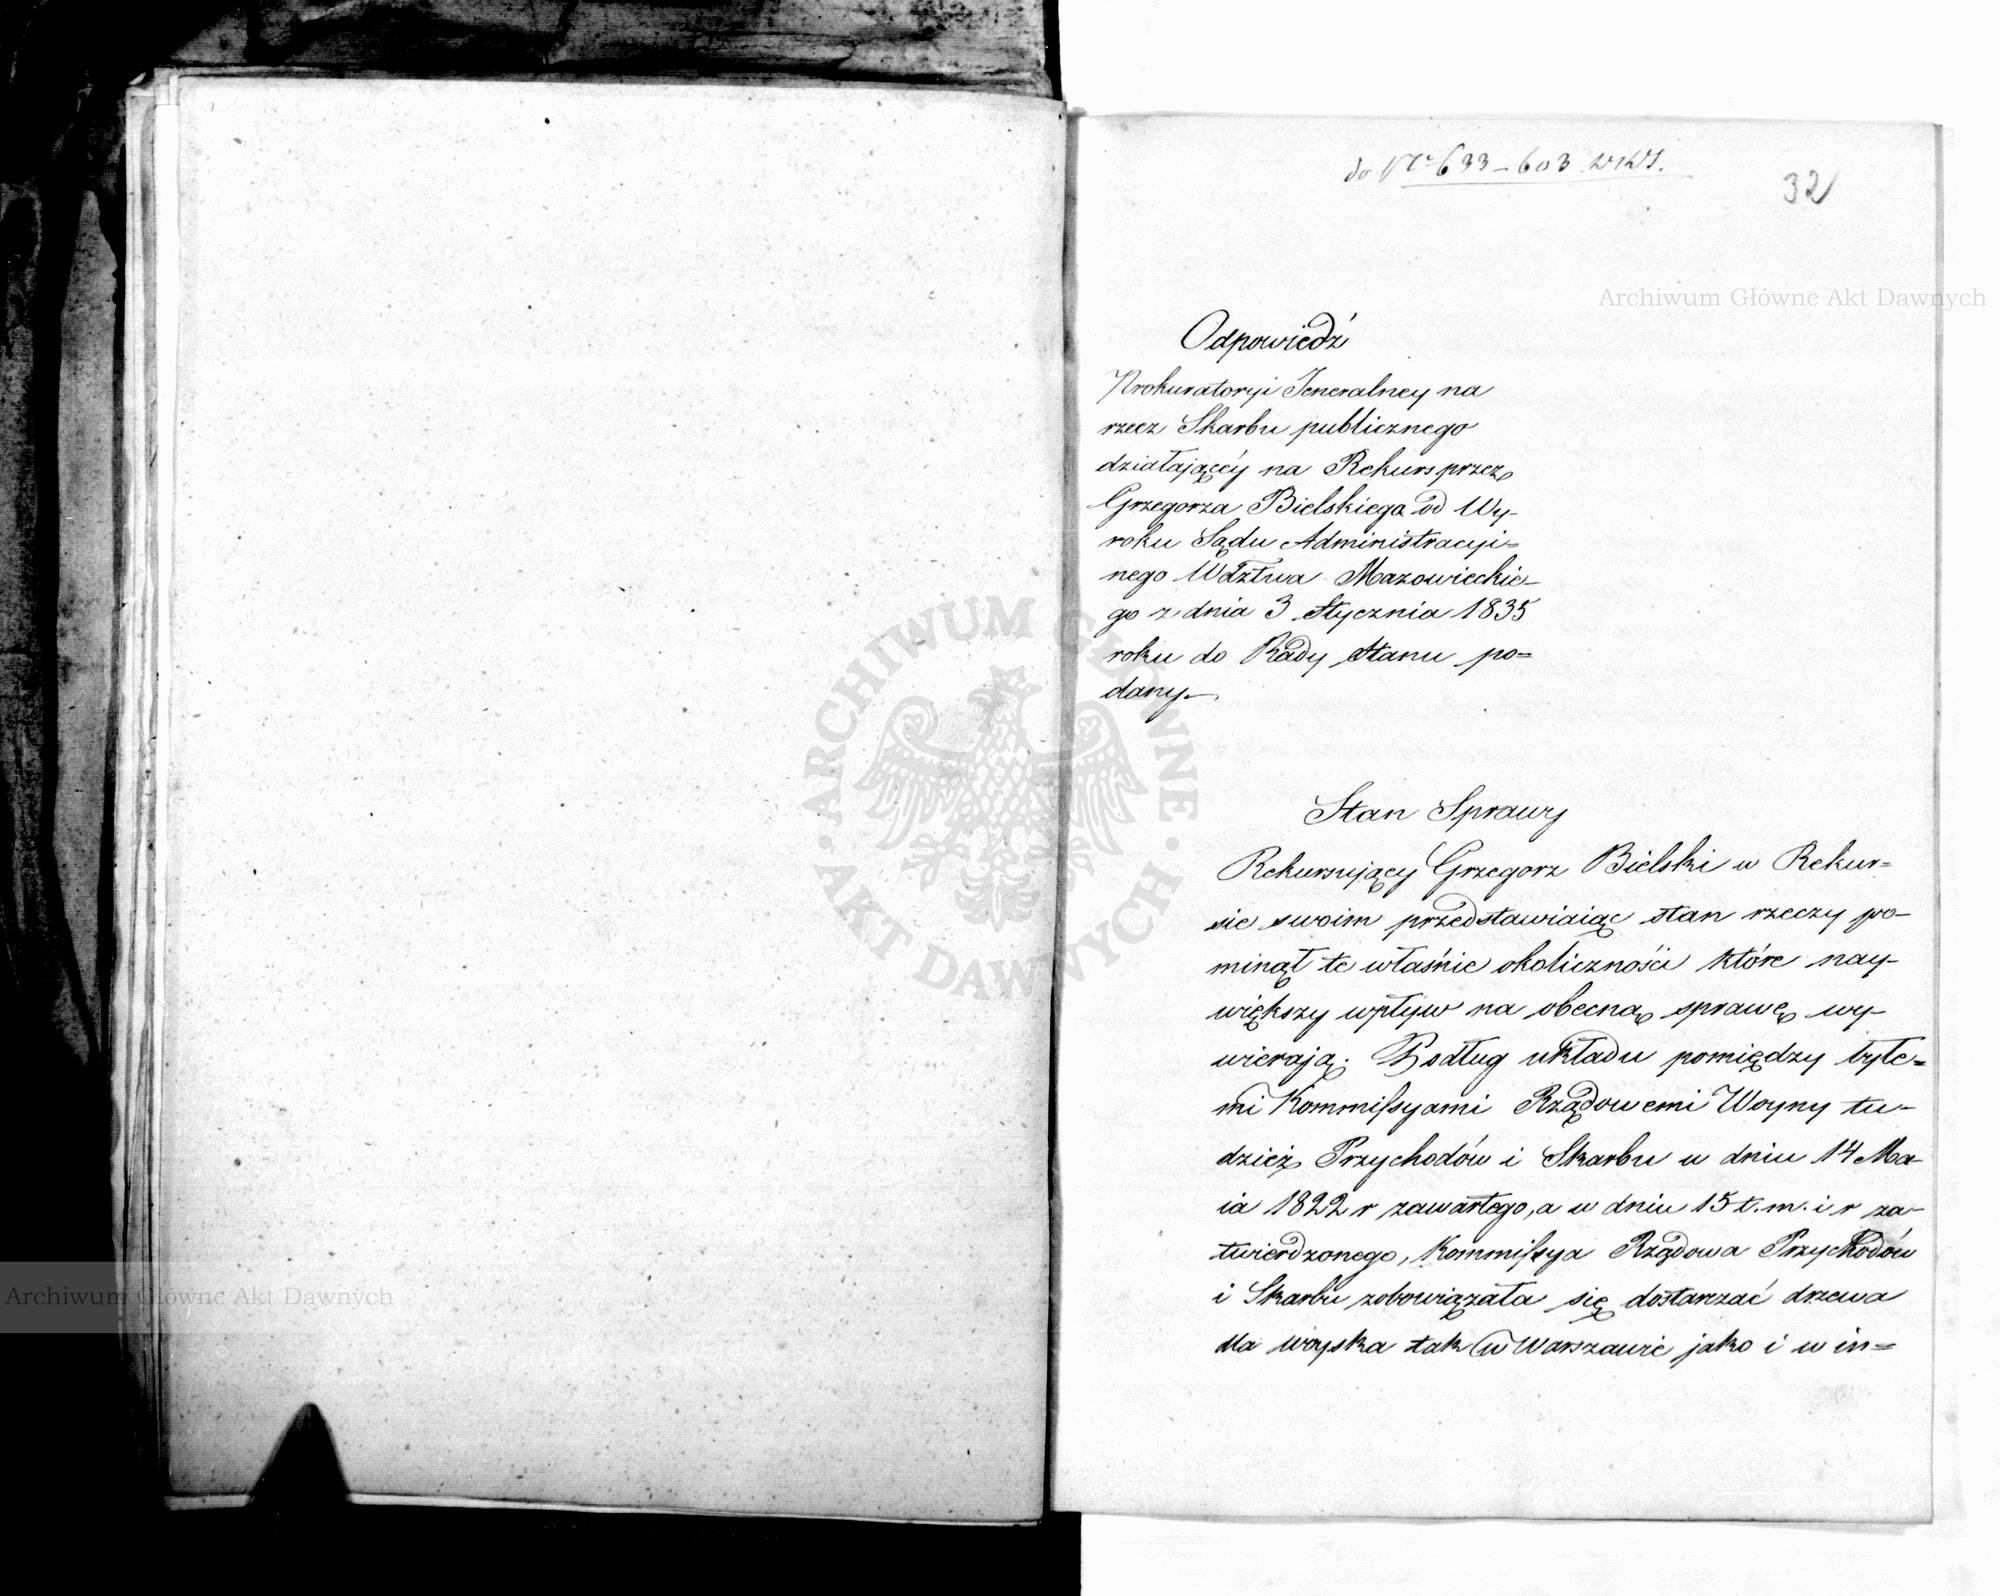 do Nro 633-603
32
Archiwum Główne Akt Dawnych
Odpowiedź
Prokuratoryi Jeneralney na
rzecz Skarbu publicznego
działającéy na Rekurs przez
Grzegorza Bielskiego od Wy-
roku Sądu Administracyi=
nego Wdztwa Mazowieckie-
go z dnia 3 Stycznia 1835
roku do Rady Stanu po=
dany.
Stan Sprawy
Rekursujący Grzegorz Bielski w Rekur=
sie swoim przedstawiaiąc stan rzeczy po-
minął te właśnie okoliczności które nay-
większy wpływ na obecną sprawę wy-
wierają. Podług układu pomiędzy byłe=
mi Kommissyami Rządowemi Woyny tu-
dzież Przychodów i Skarbu w dniu 14 Ma-
ia 1822 r zawartego, a w dniu 15 t. m. i r za-
twierdzonego, Kommissya Rządowa Przychodów
i Skarbu zobowiązała się dostarzać drzewa
dla woyska tak w Warszawie jako i w in=
ARCHIWUM GŁÓWNE
AKT DAWNYCH
Archiwum Główne Akt Dawnych